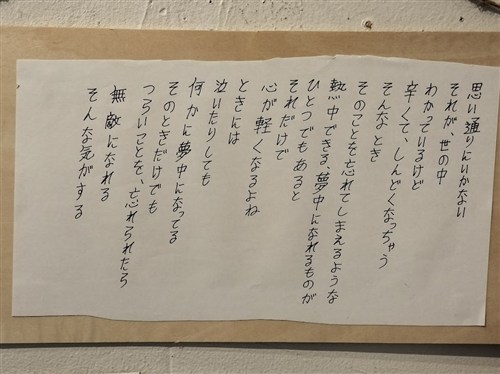 思い通りにいかない
それが、世の中
わかっているけど
辛くて、しんどくなっちゃう
そんなとき
そのことを忘れてしまえるような
熱中できる、夢中になれるものが
ひとつでもあると
それだけで
心が軽くなるよね
ときには
泣いたりしても
何かに夢中になってる
そのときだけでも
つらいことを、忘れられたら
無敵になれる
そんな気がする